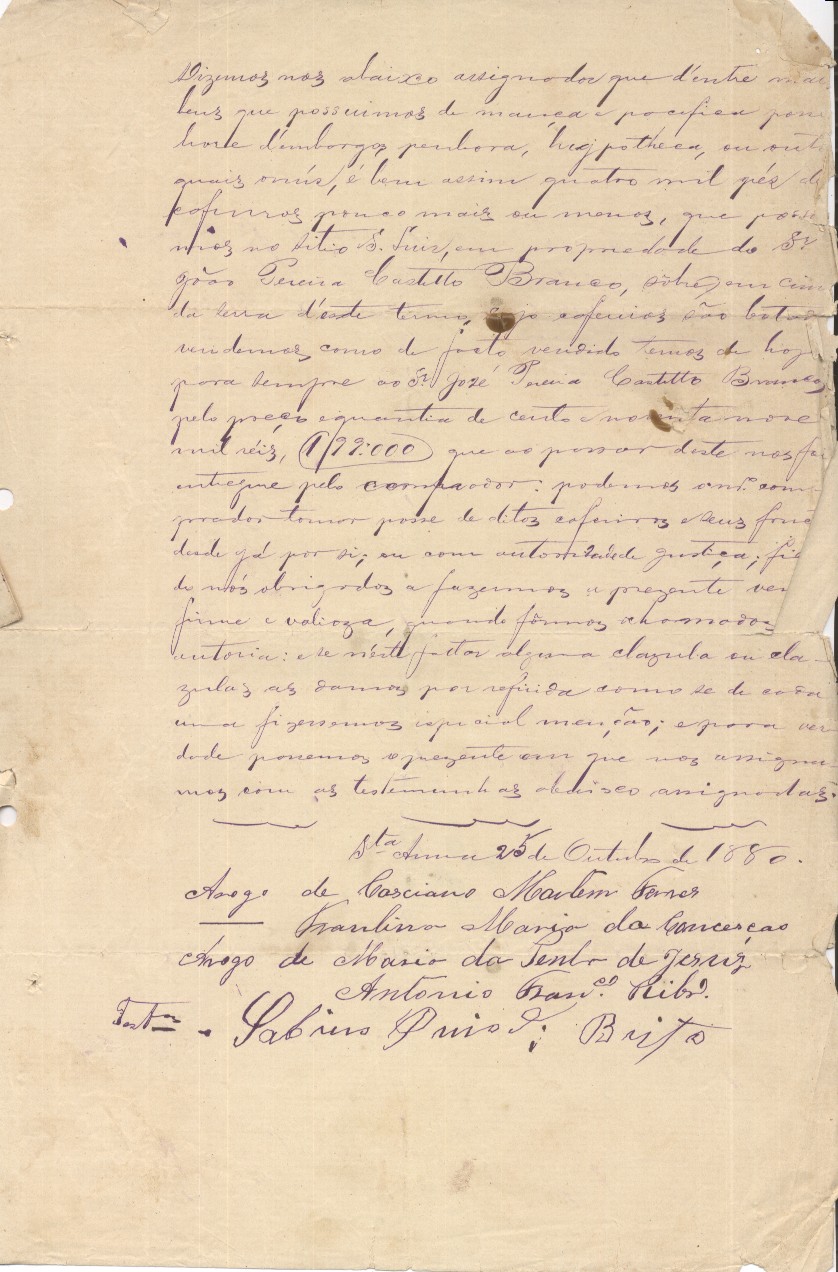 Dizemos nos abaixo assignados que d'entre mai
bens que possuimos de mança e pacifica poss
livre d'embargos, penhora, hypotheca, ou out
quais onús, é bem assim quatro mil péz d
cafeiros pouco mais ou menos, que poss
mos no sitio S. Luiz, em propriedade do Sr.
João Pereira Castello Branco, sôbre em cim
da terra d'este termo, cujo cafeeiros são
vendemos como de facto vendido temos de hoj
para sempre ao Sr. José Pereira Castello Branco,
pelo preço e quantia de cento e noventa nove
mil réis, 199:000 que ao passar deste nos foi
entregue pelo comprador: podemos com
prador tomar posse de ditos cafeeiros e seus fruc
desde já por si; ou com autoridade justiça; fi
de nós obrigados a fazermos a prezente ven
firme e valioza, quando fôrmos chamados
autoria: e se n'éste faltar alguma clazula ou cla-
zulas as damos por refirida como se de cada
uma fizessemos especial menção; e para ver
dade passemos o prezente em que nos assigna
mos com as testemunhas abaixo assignadas.
Sta. Anna 25 de Outubro de 1880.
Arogo de Casciano Martem
Maria da Conceição
Arogo de Maria da Penha de Jesuz
Antonio Franco. Ribro.
Testas. Sabino Brito